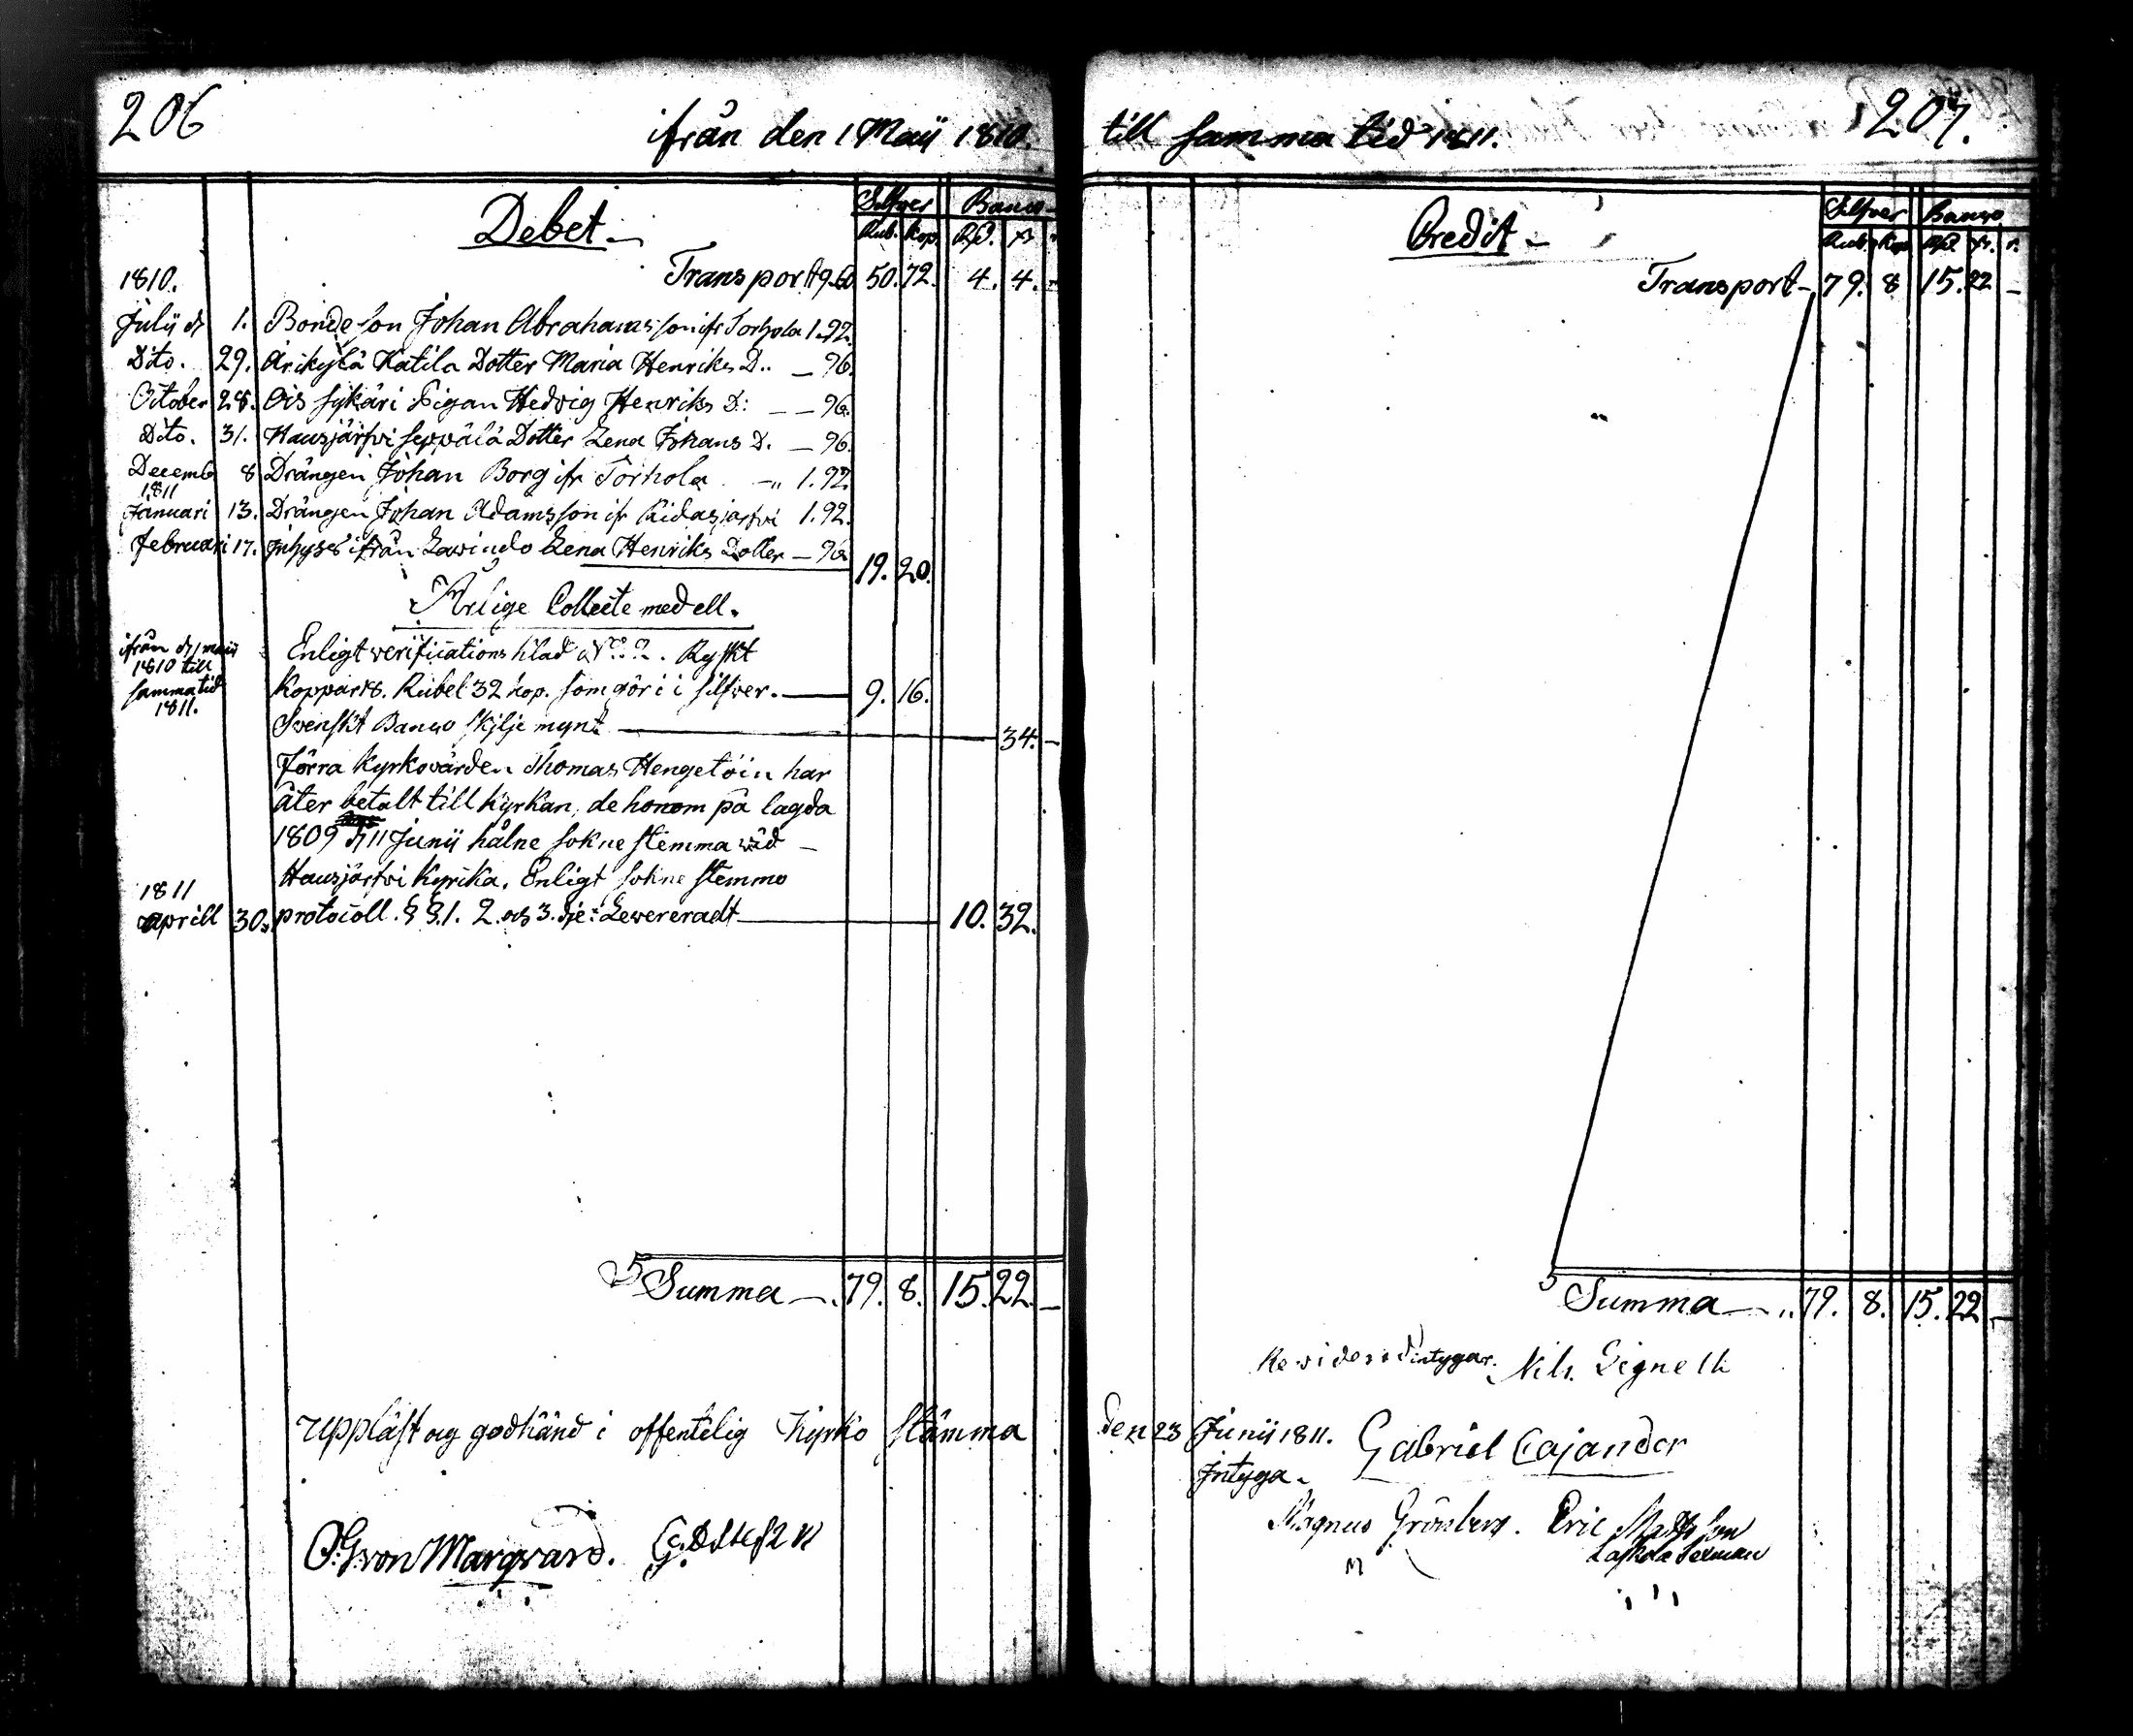 206
ifrån den 1 Maij 1810.
Debet
Silfver Banco
Rub. Kop. Rd. ß r
1810. Transport 9.60 50. 72. 4. 4. -
Julij d 1. Bonde son Johan Abrahams son ifr Torhola 1.92.
Dito. 29. Arikylä Katila Dotter Maria Henriks D.. - 96.
October 28. Ois sykäri Pigan Hedvig Henriks D: - - 96.
Dito. 31. Hausjärfvi Seppälä Dotter Lena Johans D. - 96.
Decemb 8 Drängen Johan Borg ifr Torhola - " 1.92.
1811
Januari 13. Drängen Johan Adamsson ifr Ridasjärfvi 1.92.
Februari 17. Inhyses ifrån Lavindo Lena Henriks Dotter - 96
19. 20.
Årlige Collecte medell.
ifrån d 1 maij
1810 till
samma tid
1811.
Enligt verifications blad N:o 2. Ryskt
Koppar 18. Rubel 32 kop. som gör i silfver. 9. 16.
Svenskt Banco skilje mynt 34. -
Förra Kyrkovärden Thomas Hengetöin har
åter betalt till Kyrkan, de honom på lagda
1809 d 11 Junij hålne sokne stemma vid -
Hausjärfvi Kyrka. Enligt sokne stemmo
1811
aprill 30. protocoll. § §. 1. 2. och 3. dje: Levereradt 10. 32.
Summa 79. 8. 15. 22. -
Uppläst og godkänd i offentelig Kyrko stämma
O. G. von Marqvard.
till samma tid 1811.
207.
Credit
Silfver Banco
Rub. Kop. Rd. ß. r.
Transport 79. 8 15. 22 -
Summa 79. 8. 15. 22 -
Reviderad intygar. Nils Lignell
den 23 Junij 1811. Gabriel Cajander
Intyga.
Magnus Grönberg. Eric Matts son